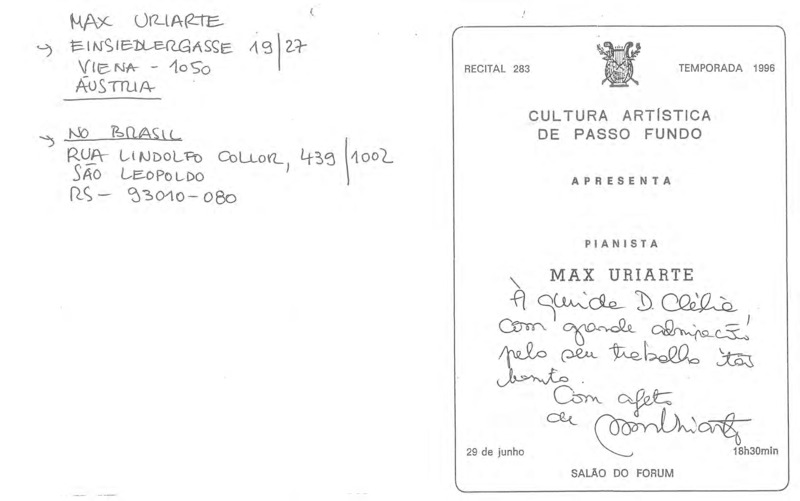 MAX URIARTE
EINSIEDLERGASSE 19/27
VIENA - 1050
ÁUSTRIA
NO BRASIL
RUA LINDOLFO COLLOR, 439/1002
SÃO LEOPOLDO
RS - 93010-080
RECITAL 283
TEMPORADA 1996
CULTURA ARTÍSTICA
DE PASSO FUNDO
APRESENTA
PIANISTA
MAX URIARTE
À querida D. Clélia,
com grande admiração
pelo seu trabalho tão
bonito.
Com afeto
de Max Uriarte
29 de junho
18h30min
SALÃO DO FORUM